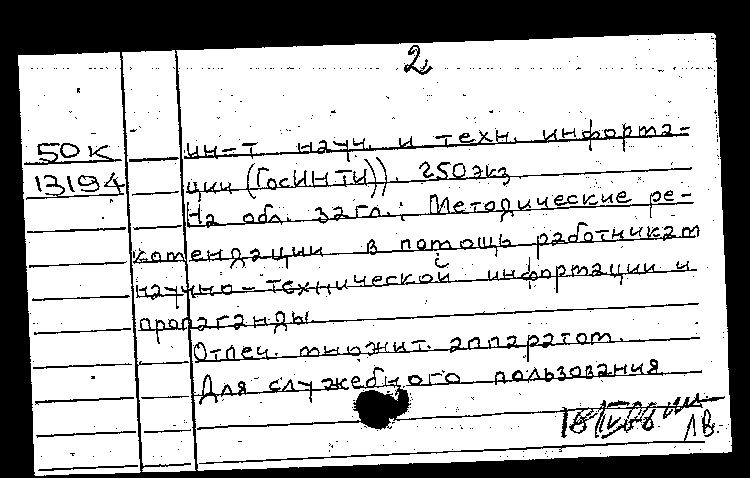 2
50к
13194
ин-т науч. и техн. информа-
ции (ГосИНТИ)). 250 экз
На обл. загл.: Методические ре-
комендации в помощь работникам
научно-технической информации и
пропаганды.
Отпеч. множит. аппаратом.
Для служебного пользования
ЛВ.